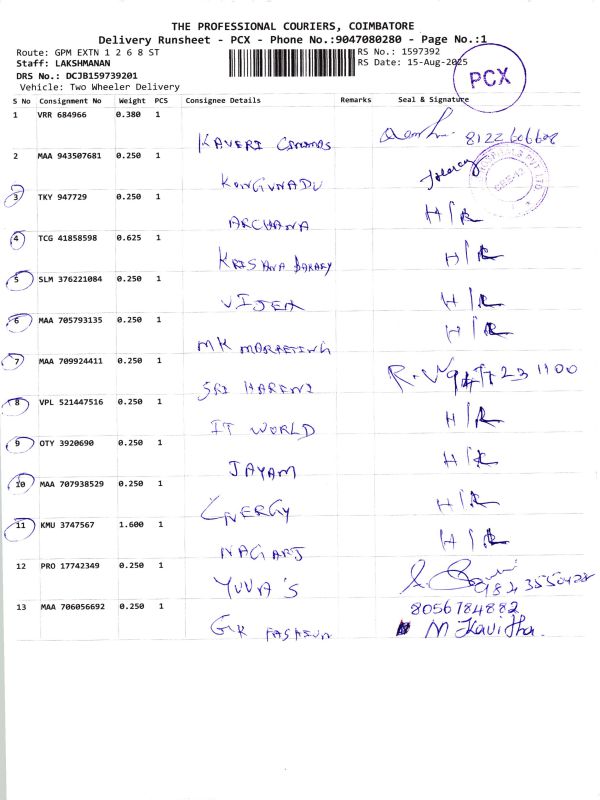 THE PROFESSIONAL COURIERS, COIMBATORE
Delivery Runsheet - PCX - Phone No.:9047080280 - Page No.:1
Route: GPM EXTN 1 2 6 8 ST
Staff: LAKSHMANAN
DRS No.: DCJB159739201
Vehicle: Two Wheeler Delivery
RS No.: 1597392
RS Date: 15-Aug-2025
PCX
S No Consignment No Weight PCS Consignee Details Remarks Seal & Signature
1 VRR 684966 0.380 1
KAVERI 8122606608
2 MAA 943507681 0.250 1
KONGUNADU
3 TKY 947729 0.250 1
ARCHANA H/R
4 TCG 41858598 0.625 1
KRISHNA BAKARY H/R
5 SLM 376221084 0.250 1
VIJEA H/R
6 MAA 705793135 0.250 1
MK MARKETING H/R
7 MAA 709924411 0.250 1
SRI HARENI R.V
8 VPL 521447516 0.250 1
IT WORLD H/R
9 OTY 3920690 0.250 1
JAYAM H/R
10 MAA 707938529 0.250 1
ENERGY H/R
11 KMU 3747567 1.600 1
NAGARJ H/R
12 PRO 17742349 0.250 1
YUVA'S
13 MAA 706056692 0.250 1
8056784882
GK FASHION M Kavitha.